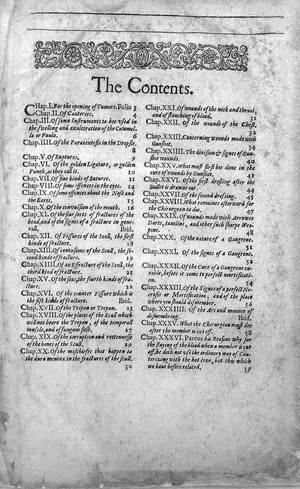 The Contents.
CHap.I. For the opening of Tumors. Folio 3
Chap.II. Of Cauteries, 4
Chap.III. Of some Instruments to bee used in
the swelling and exulceration of the Columel-
la or Vuula.
Chap.IIII. Of the Paracentesis in the Dropsie,
8
Chap.V. Of Ruptures, 9
Chap.VI. Of the golden Ligature, or golden
Punch, as they call it. 10
Chap.VII. Of sixe kinds of Sutures. 11
Chap.VIII. Of some offences in the eyes. 14
Chap.IX. Of some offences about the Nose and
the Eares. 15
Chap.X. Of the contusion of the mouth. 16
Chap.XI. Of the sixe sorts of fractures of the
head, and of the signes of fractures in gene-
rall. Ibid.
Chap.XII. Of Fissures of the Scull, the first
kinde of fracture. 18
Chap.XIII. Of contusions of the Scull, the se-
cond kinde of fracture. 19
Chap.XIIII. Of an Effracture of the Scull, the
third kind of fracture. 21
Chap.XV. Of the Seat, the fourth kinde of frac-
ture. 22
Chap.XVI. Of the counter Fissure which is
the fift kinde of fracture. Ibid.
Chap.XVII. Of the Trepan or Trepan. 25
Chap.XVIII. Of the places of the Scull which
will not beare the Trepan, of the temporall
muscle, and of fungous flesh. 27
Chap.XIX. Of the corruption and rottennesse
of the bones of the Scull. 29
Chap.XX. Of the mischiefes that happen to
the dura meninx in the fractures of the scull.
30
Chap.XXI. Of wounds of the neck and throat,
and of stanching of bloud. 31
Chap.XXII. Of the wounds of the Chest.
32
Chap.XXIII. Concerning wounds made with
Gunshot.
Chap.XXIIII. The division & signes of Gun-
shot wounds. 40
Chap.XXV. What must first bee done in the
cure of wounds by Gunshot. 42
Chap.XXVI. Of the first dressing after the
Bullet is drawne out. 45
Chap.XXVII. Of the second dressing. 45
Chap.XXVIII. What remaines afterward for
the Chirurgeon to doe. 47
Chap.XXIX. Of wounds made with Arrowes
Darts, Iavelins, and other such sharpe Wea-
pons. 48
Chap.XXX. Of the nature of a Gangrene.
51
Chap.XXXI. Of the signes of a Gangrene.
52
Chap.XXXII. Of the Cure of a Gangrene ca-
sion, before it come to perfect mortificati-
on. 53
Chap.XXXIII. Of the Signes of a perfect
or Mortification, and of the place
where you should dismember. 56
Chap.XXXIIII. Of the Art and manner of
dismembring. Ibid.
Chap.XXXV. What the Chirurgion must doe
after the member is cut off. 58
Chap.XXXVI. Paræus his Reasons why for
the staying of the bloud when a member is cut
off, he doth not use the ordinary way of Cau-
terizing with the hot iron, but this which
we have before related. 59